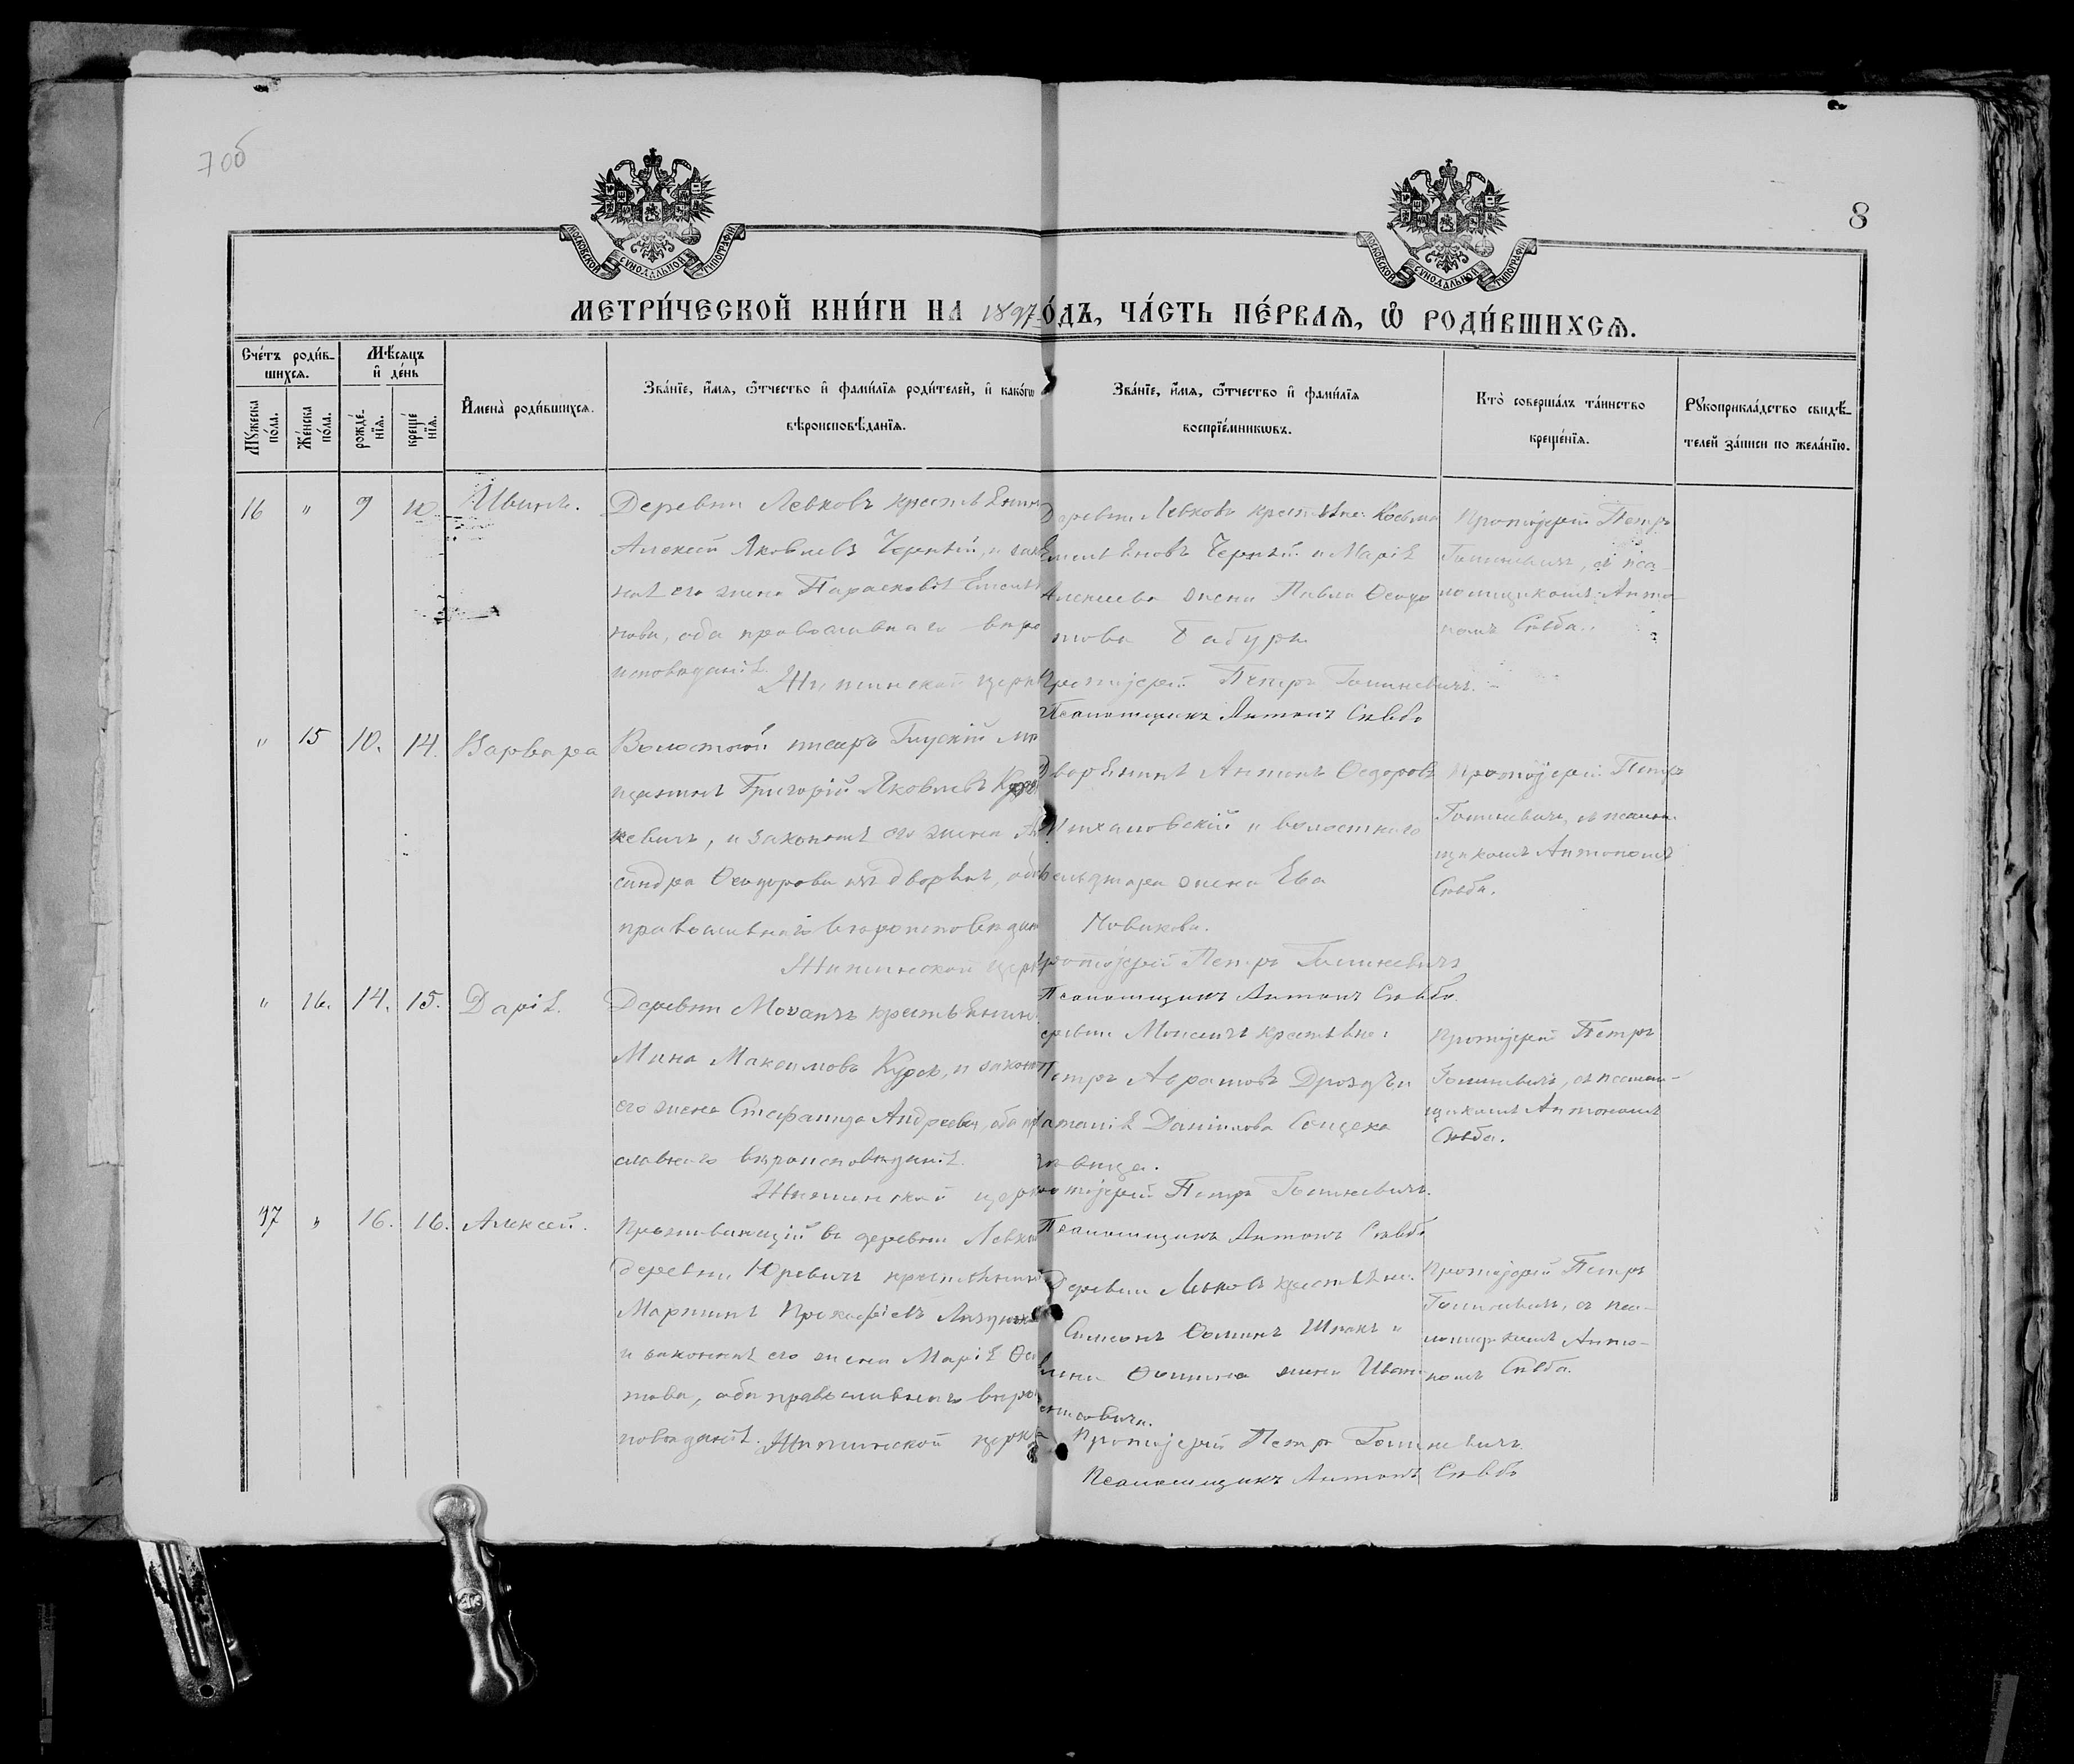 7 об
8
МОСКОВСКОЙ СУНОДАЛЬНОЙ ТИПОГРАФІИ
МОСКОВСКОЙ СУНОДАЛЬНОЙ ТИПОГРАФІИ
МЕТРИ́ЧЕСКОЙ КНИ́ГИ НА 1897 О́ДЪ, ЧА́СТЬ ПЕ́РВАѦ, Ѽ РОДИ́ВШИХСѦ.
Сче́тъ роди́в-
шихсѧ.
Мѣ́сѧцъ
и҆ де́нь
Мꙋ́жеска по́ла.
Же́нска по́ла.
рожде́-
нїѧ.
креще́
нїѧ.
И҆мена̀ роди́вшихсѧ.
Зва́нїе, и҆́мѧ, ѻ҆́тчество и҆ фами́лїѧ роди́телей, и҆ како́гѡ
вѣроисповѣ́данїѧ.
Зва́нїе, и҆́мѧ, ѻ҆́тчество и҆ фами́лїѧ
воспрїе́мникѡвъ.
Кто̀ соверша́лъ та́инство
креще́нїѧ.
Рꙋкоприкла́дство свидѣ́-
телей за́писи по жела́нїю.
16 " 9 10 Иванъ.
Деревни Левковъ крестьянин
Алексей Яковлевъ Черный, и зако
ная его жена Парасковія Емелья
нова, оба православнаго веро
исповеданія.
Житинской церкв
Деревни Левковъ крестьяне: Косьма
Емельяновъ Черный и Марія
Алексеева жена Павла Федо
това Бабура
Протоіерей Петръ Гошкевичъ.
Псаломщикъ Антонъ Сявбо
Протоіерей Петръ
Гошкевичъ, съ пса-
ломщикомъ Анто-
номъ Сявбо.
" 15 10. 14. Варвара
Волостной писарь Глускій
щанинъ Григорій Яковлевъ
кевичъ, и законная его жена
сандра Феодорова изъ дворянъ, оба
православнаго вероисповедан
Житинской церкв
Дворянинъ Антонъ Федоровъ
и волостного
жена Ева
Новикова.
Протоіерей Петръ Гошкевичъ
Псаломщикъ Антонъ Сявбо.
Протоіерей Петръ
Гошкевичъ, съ псалом-
щикомъ Антономъ
Сявбо.
" 16. 14. 15. Дарія.
Деревни крестьянин
Мина Максимовъ Курсъ, и закон
его жена Стефанида Андреева, оба
славнаго вероисповеданія.
Житинской церкв
крестьяне:
Петръ Аврамовъ Дроздъ и
Даніилова
Протоіерей Петръ Гошкевичъ.
Псаломщикъ Антонъ Сявбо
Протоіерей Петръ
Гошкевичъ, съ псалом-
щикомъ Антономъ
Сявбо.
17 " 16. 16. Алексей.
Проживающій въ деревни Левков
деревни Юревичъ крестьянин
Мартинъ Прокофіевъ
и законная его жена Марія
това, оба православнаго веро
поведанія. Житинской церкв
Деревни Левковъ крестьяне:
Симеонъ Фоминъ Шпакъ и
Фомина жена
Протоіерей Петръ Гошкевичъ
Псаломщикъ Антонъ Сявбо
Протоіерей Петръ
Гошкевичъ, съ пса-
ломщикомъ Анто-
номъ Сявбо.